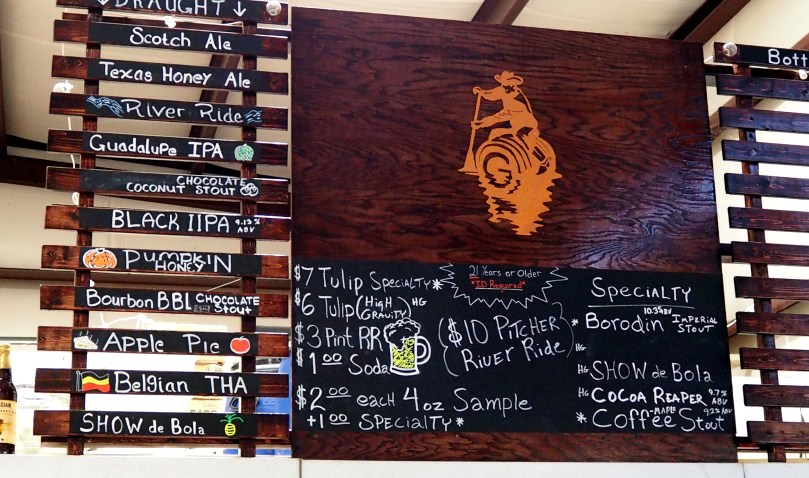 ↓DRAUGHT↓
Scotch Ale
Texas Honey Ale
River Ride
Guadalupe IPA
CHOCOLATE
COCONUT STOUT
BLACK IIPA 9.13% ABV
PUMPKIN
HONEY
Bourbon BBL CHOCOLATE Stout
Apple Pie
Belgian THA
SHOW de Bola
G
$7 Tulip Specialty*
$6 Tulip (High Gravity) HG
$3 Pint RR
$1.00 Soda
$2.00 each 4oz Sample
+1.00 SPECIALTY*
21 Years or Older
*ID Required*
($10 PITCHER
River Ride)
Specialty
* Borodin 10.3%ABV Imperial Stout
HG
HG SHOW de Bola
HG COCOA REAPER 9.7% ABV
* Coffee -MAPLE Stout 9.2% ABV
Bott